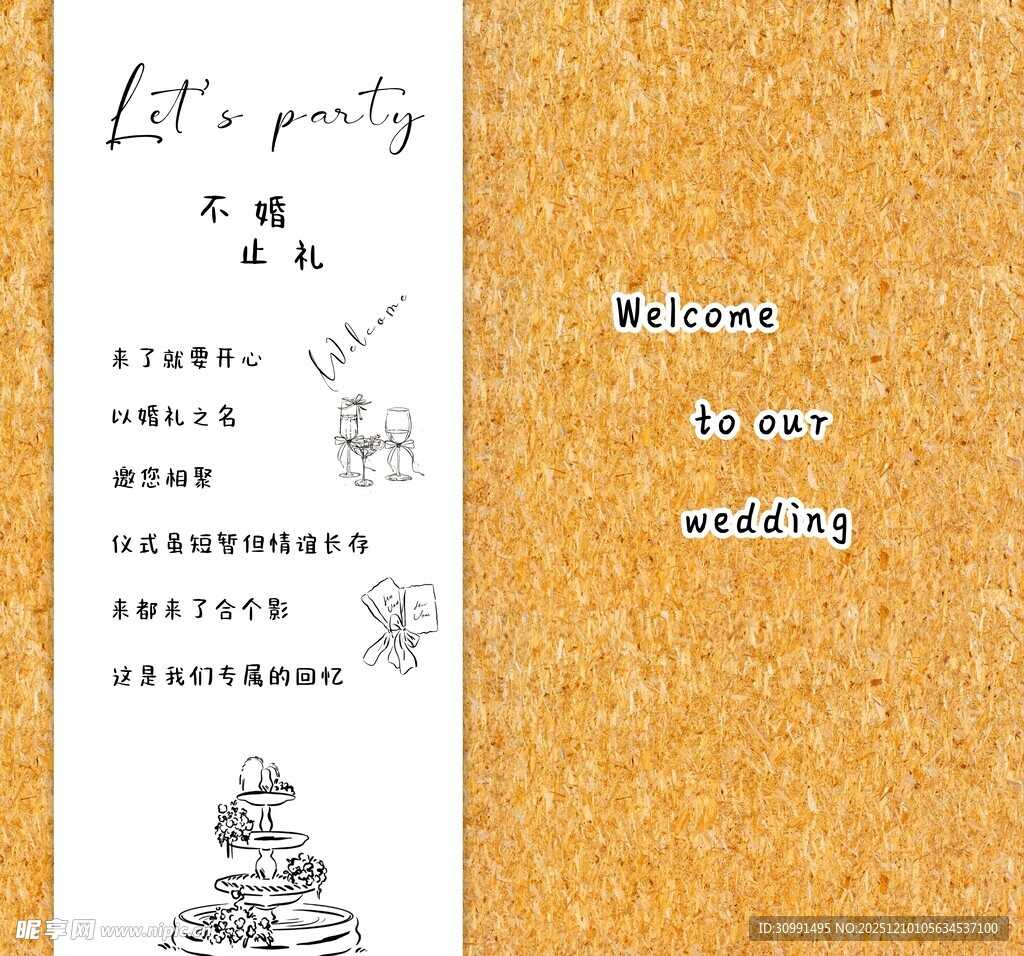 Let's party
不婚
止礼
Welcome
来了就要开心
以婚礼之名
邀您相聚
仪式虽短暂但情谊长存
来都来了合个影
这是我们专属的回忆
Welcome
to our
wedding
昵享网 www.nipic.cn
ID:30991495 NO:20251210105634537100